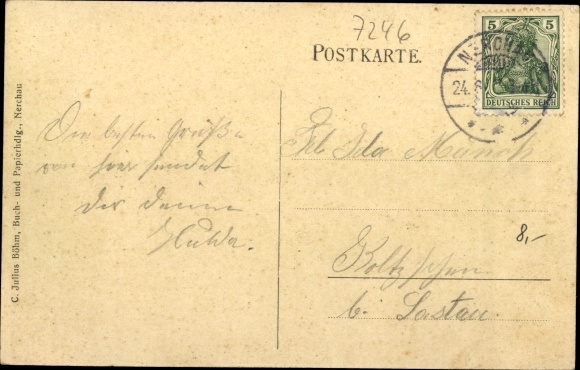 7246
POSTKARTE.
5 5
DEUTSCHES REICH
NERCHAU
24.
Die besten Grüße
von hier sendet
Dir deine
Hulda.
Frl Ida Munch
8,-
b. Lastau.
C. Julius Böhm, Buch- und Papierhdlg., Nerchau